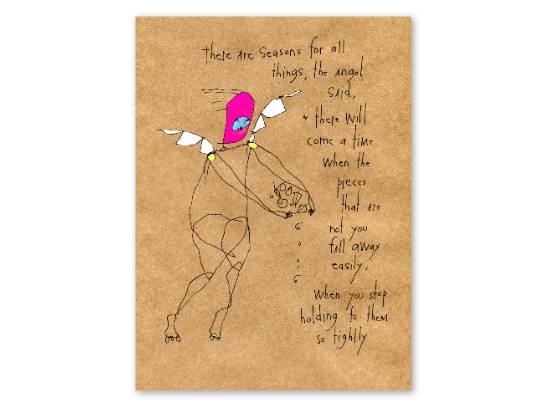 there are seasons for all
things, the angel
said,
" there will
come a time
when the
pieces
that are
not you
fall away
easily,
when you stop
holding to them
so tightly